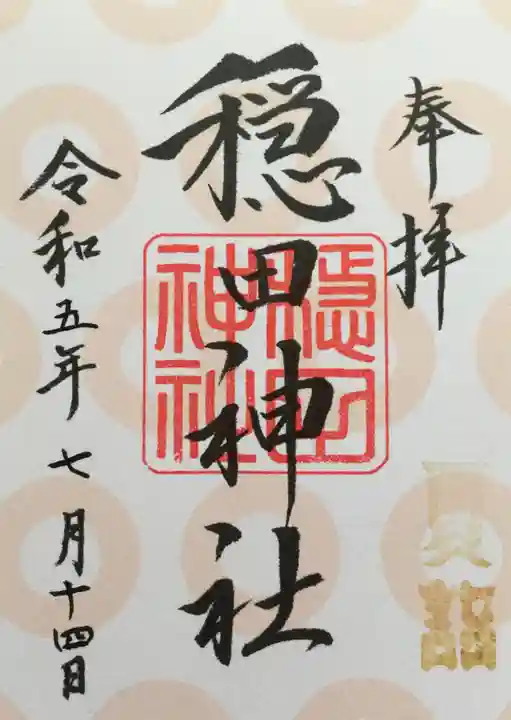 奉拝
夏詣
穏田神社
穏田神社
令和五年七月十四日